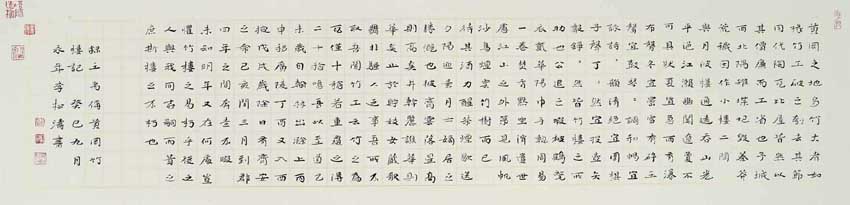 黄岡之地多竹大者如
椽竹工破之刳去其節
用代陶瓦比屋皆然以
其價廉而工省也子城
西北隅雉堞圮毀蓁莽
荒穢因作小樓二間
與月波樓通遠吞山光
平挹江瀨幽闃遼夐不
可具狀夏宜急雨有瀑
布聲冬宜密雪有碎玉
聲宜鼓琴琴調和暢宜
詠詩詩韻清絶宜圍棋
子聲丁丁然宜投壺矢
聲錚錚然皆竹樓之所
助也公退之暇披鶴氅
衣戴華陽巾手執周易
一卷焚香默坐消遣世
慮江山之外第見風帆
沙鳥烟雲竹樹而已
待其酒力醒茶烟歇送
夕陽迎素月亦謫居之
勝概也彼齊雲落星高
則高矣井幹麗譙華則
華矣止於貯妓女藏歌
舞非騷人之事吾所不
取吾聞竹工云竹之為
瓦僅十稔若重覆之得
二十稔噫吾以至道乙
未歲自翰林出滁上丙
申移廣陵丁酉又入西
掖戊戌歲除日有齊安
之命己亥閏三月到郡
四年之間奔走不暇
未知明年又在何處豈
懼竹樓之易朽乎後之
人與我同志嗣而葺之
庶斯樓之不朽也
録王禹偁黄岡竹
樓記 癸巳九月
永年李相濤書